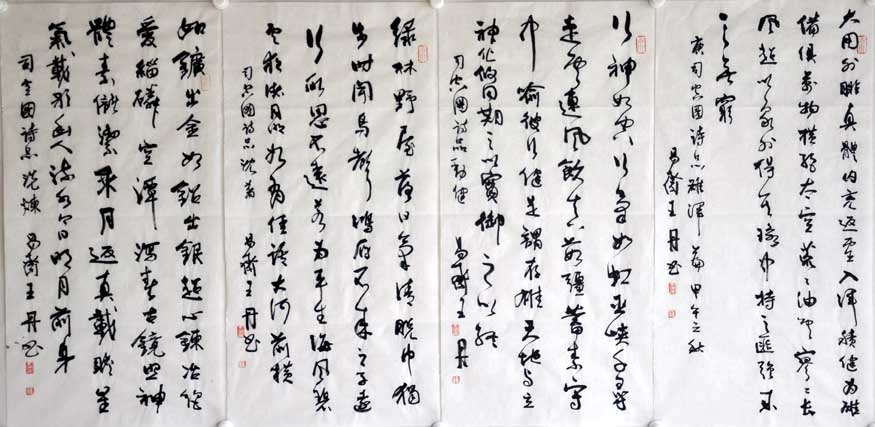 大用外腓真體内充返虛入渾積健為雄
備俱萬物橫絕太空荒〻油雲寥〻長
風超以象外得其環中持之匪強來
之無窮
唐司空圖詩品雄渾篇甲午立秋
易齋王丹书
行神如空行氣如虹巫峽千尋
走雲連風飲真茹疆蓄素守
中喻彼行健是謂存雄天地與立
神化攸同期之以實御之以終
司空圖詩品勁健 易齋王丹
綠林野屋落日氣清脫巾獨
步時聞鳥聲鴻雁不來之子遠
行所思不遠若為平生海風碧
雲夜渚月明如有佳語大河前橫
司空圖詩品沈着 易齋王丹书
如鑛出金如鉛出銀超心鍊冶絕
愛緇磷空潭瀉春古鏡照神
體素儲潔乘月返真載瞻星
氣載歌幽人流水今日明月前身
司空圖詩品洗煉 易齋王丹书